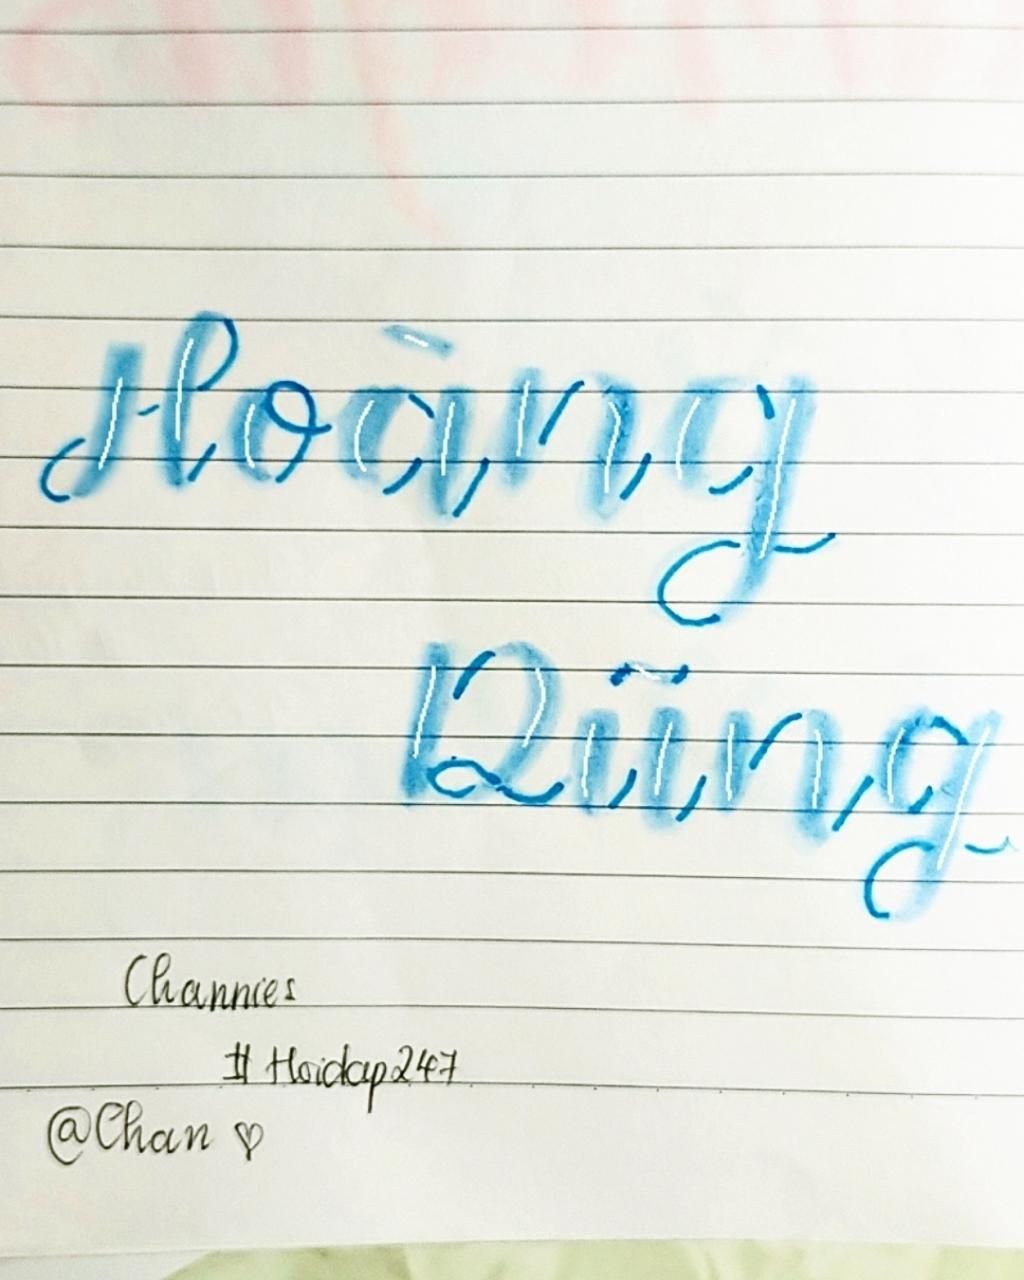 Hoàng
Dũng
Channies
# Hoidap247
@Chan ♡